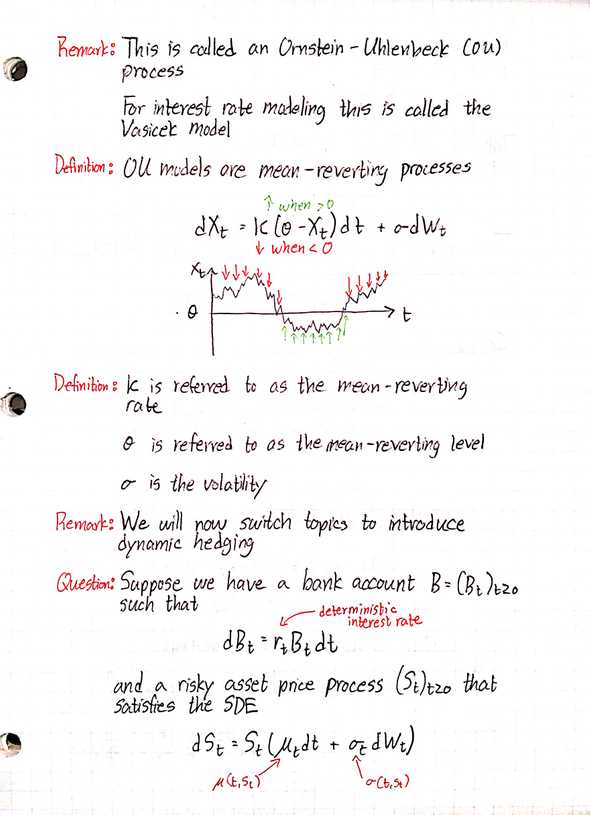 Remark: This is called an Ornstein-Uhlenbeck (OU)
process
For interest rate modeling this is called the
Vasicek model
Definition: OU models are mean-reverting processes
↑ when >0
dX_t = k(θ - X_t)dt + σdW_t
↓ when <0
X_t
θ
t
Definition: k is referred to as the mean-reverting
rate
θ is referred to as the mean-reverting level
σ is the volatility
Remark: We will now switch topics to introduce
dynamic hedging
Question: Suppose we have a bank account B=(B_t)_t≥0
such that
deterministic
interest rate
dB_t = r_t B_t dt
and a risky asset price process (S_t)_t≥0 that
satisfies the SDE
dS_t = S_t(μ_t dt + σ_t dW_t)
μ(t,S_t) σ(t,S_t)